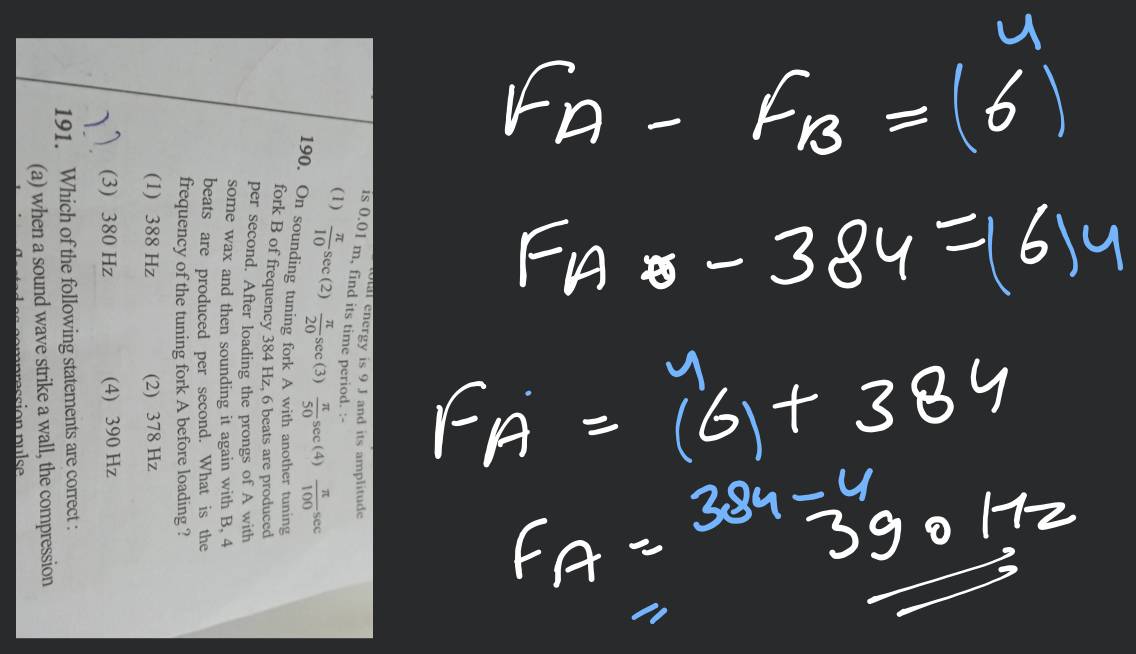 is 0.01 m, find its time period. :-
(1) π/10 sec (2) π/20 sec (3) π/50 sec (4) π/100 sec
190. On sounding tuning fork A with another tuning
fork B of frequency 384 Hz, 6 beats are produced
per second. After loading the prongs of A with
some wax and then sounding it again with B, 4
beats are produced per second. What is the
frequency of the tuning fork A before loading ?
(1) 388 Hz (2) 378 Hz
(3) 380 Hz (4) 390 Hz
??
191. Which of the following statements are correct :
(a) when a sound wave strike a wall, the compression
4
FA - FB = (6)
FA - 384 = (6) 4
4
FA = (6) + 384
384 - 4
FA = 390 Hz